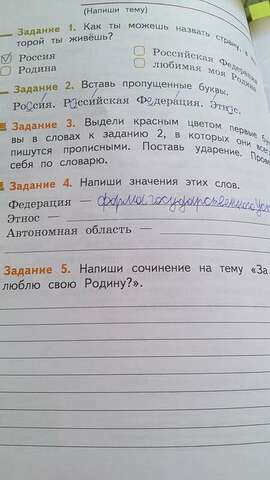 (Напиши тему)
Задание 1. Как ты можешь назвать страну, в
торой ты живёшь?
Россия
Российская Федерация
Родина
любимая моя Родина
Задание 2. Вставь пропущенные буквы.
Россия. Российская Федерация. Этнос.
Задание 3. Выдели красным цветом первые бук
вы в словах к заданию 2, в которых они все
пишутся прописными. Поставь ударение. Прове
себя по словарю.
Задание 4. Напиши значения этих слов.
Федерация — форма государственного
Этнос —
Автономная область —
Задание 5. Напиши сочинение на тему «За
люблю свою Родину?».